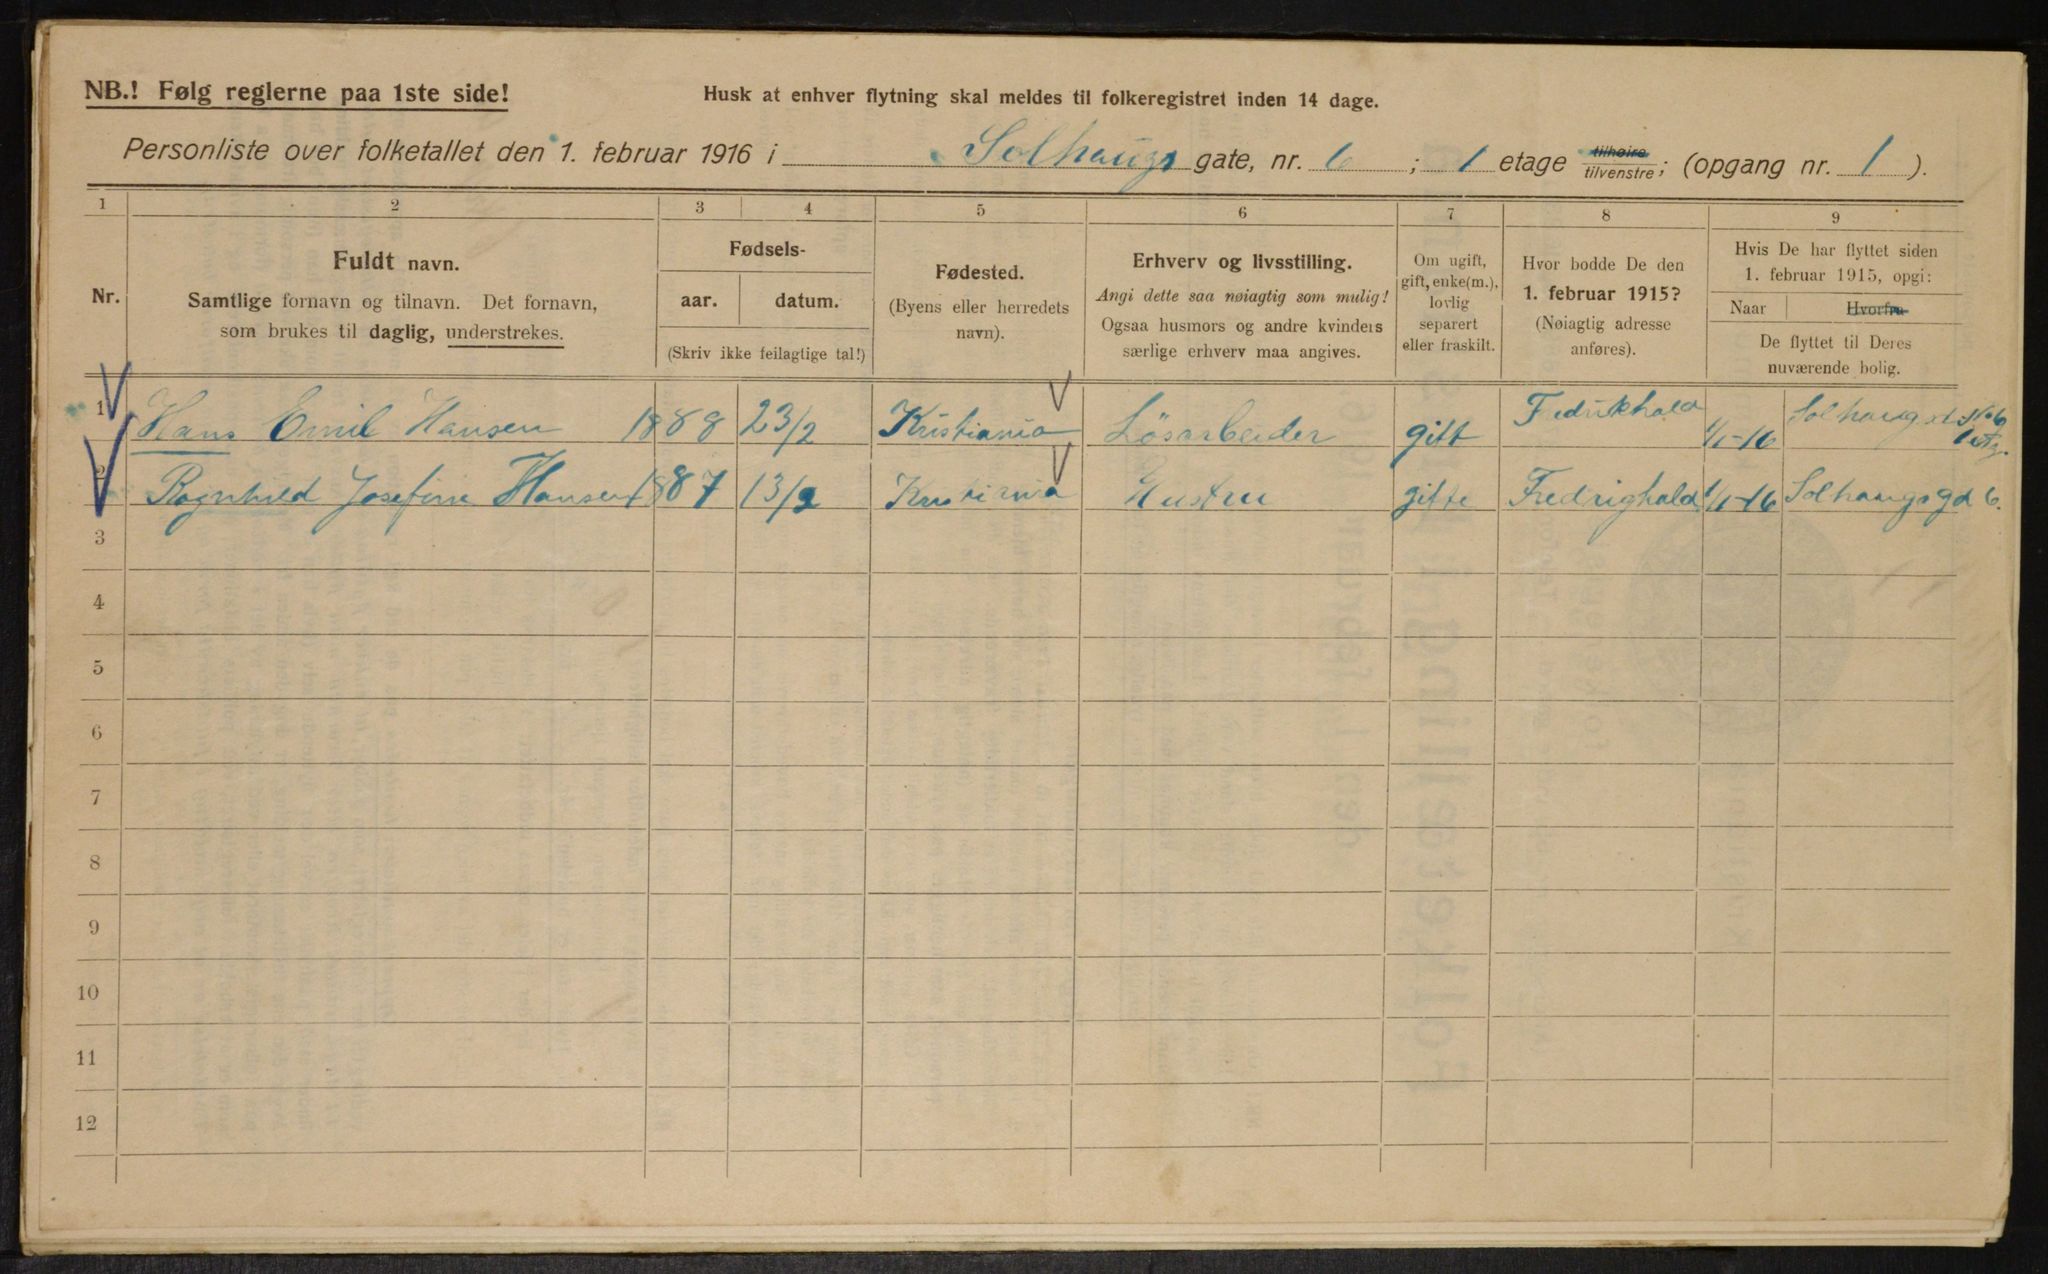 NB.! Følg reglerne paa 1ste side!
Husk at enhver flytning skal meldes til folkeregistret inden 14 dage.
Personliste over folketallet den 1. februar 1916 i Solhaugs gate, nr. 6 ; 1 etage tilhøire tilvenstre; (opgang nr. 1 ).
1 2 3 4 5 6 7 8 9
Nr.
Fuldt navn.
Samtlige fornavn og tilnavn. Det fornavn,
som brukes til daglig, understrekes.
Fødsels-
aar. datum.
(Skriv ikke feilagtige tal!)
Fødested.
(Byens eller herredets
navn).
Erhverv og livsstilling.
Angi dette saa nøiagtig som mulig!
Ogsaa husmors og andre kvinders
særlige erhverv maa angives.
Om ugift,
gift, enke(m.),
lovlig
separert
eller fraskilt.
Hvor bodde De den
1. februar 1915?
(Nøiagtig adresse
anføres).
Hvis De har flyttet siden
1. februar 1915, opgi:
Naar Hvorfra
De flyttet til Deres
nuværende bolig.
1 Hans Emil Hansen 1888 23/2 Kristiania Løsarbeider gift Fedrikhald 1/1-16 Solhaugst. No 6 1 etg.
2 Ragnhild Josefine Hansen 1887 13/2 Kristiania Hustru gifte Fredrighald 1/1-16 Solhaugsgd 6.
3
4
5
6
7
8
9
10
11
12